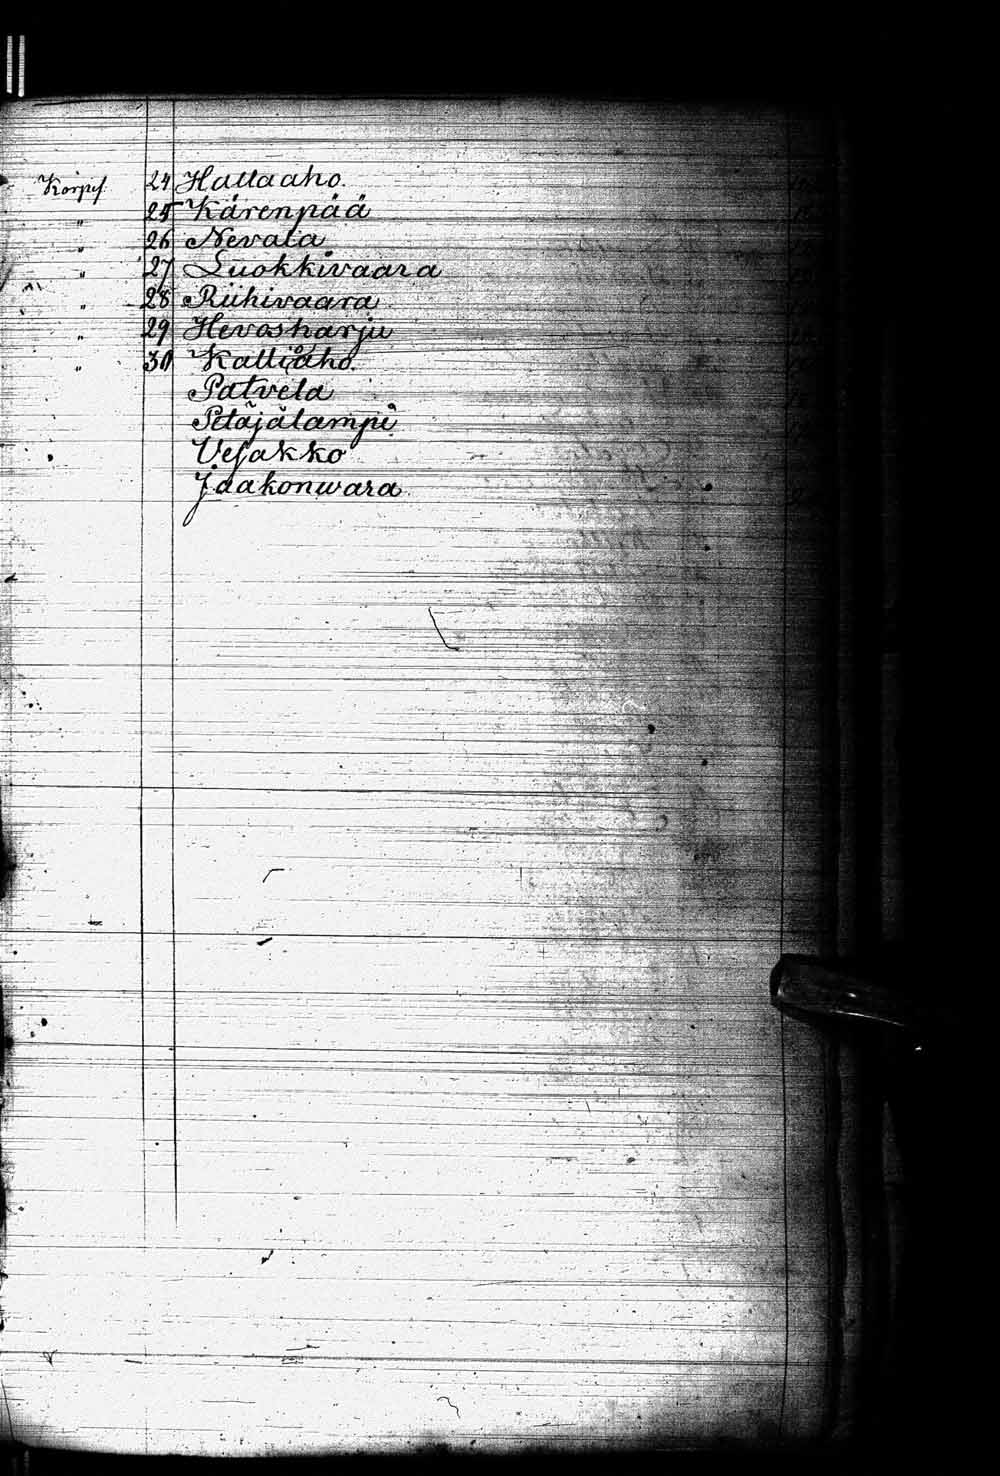 Korpif. 24 Hallaaho.
" 25 Kärenpää
" 26 Nevala
" 27 Luokkivaara
" 28 Riihivaara
" 29 Hevosharju
" 30 Kallioaho.
Patvela
Petäjälampi
Vesakko
Jaakonwara